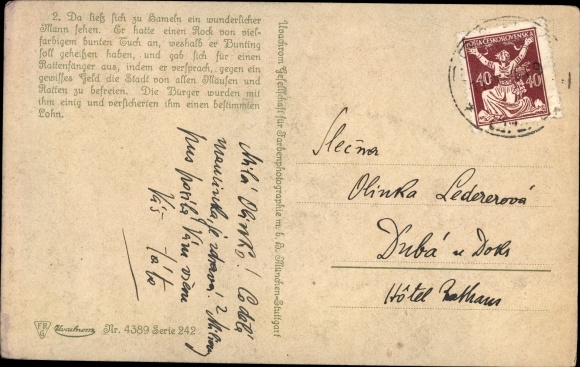 2. Da ließ sich zu Hameln ein wunderlicher
Mann sehen. Er hatte einen Rock von viel-
farbigem bunten Tuch an, weshalb er Bunting
soll geheißen haben, und gab sich für einen
Rattenfänger aus, indem er versprach, gegen ein
gewisses Geld die Stadt von allen Mäusen und
Ratten zu befreien. Die Bürger wurden mit
ihm einig und versicherten ihm einen bestimmten
Lohn.
Uvachrom Gesellschaft für Farbenphotographie m. b. H. München-Stuttgart
Milá Olinko! Co dělá
maminka, je zdravá?
pus posílá Vám všem
Váš táta
POŠTA ČESKOSLOVENSKÁ
40 40
Slečna
Olinka Ledererová
Dubá u Doks
Hôtel Rathaus
Uvachrom Nr. 4389 Serie 242